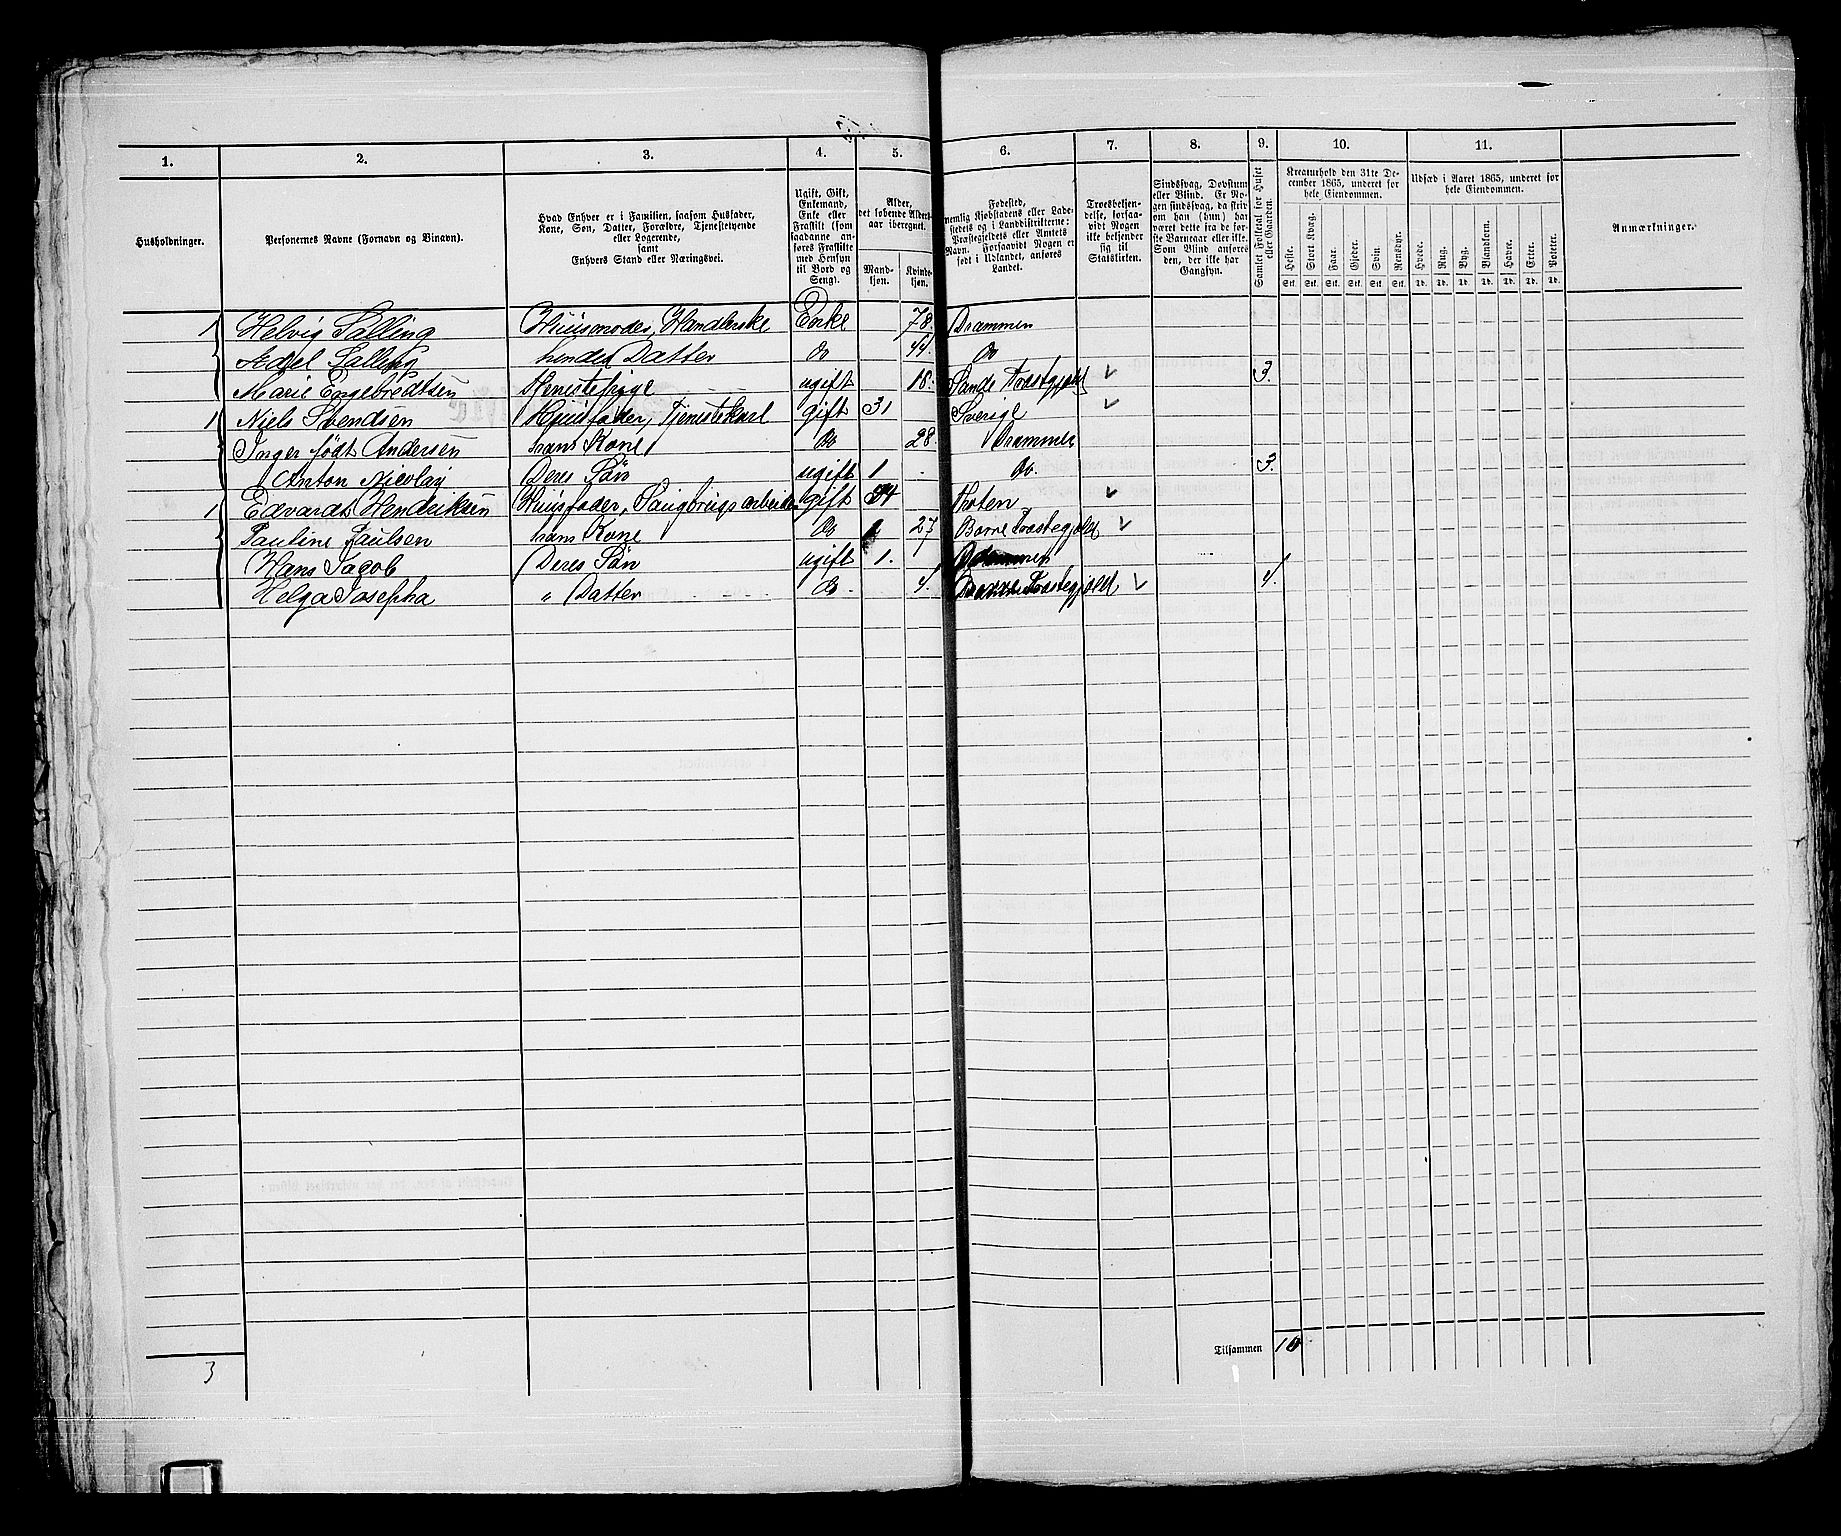 1. 2. 3. 4. 5. 6. 7. 8. 9. 10. 11.
Husholdninger.
Personernes Navne (Fornavn og Binavn).
Hvad Enhver er i Familien, saasom Husfader,
Kone, Søn, Datter, Forældre, Tjenestetyende
eller Logerende,
samt
Enhvers Stand eller Næringsvei.
Ugift, Gift,
Enkemand,
Enke eller
Fraskilt (som
saadanne an-
føres Fraskilte
med Hensyn
til Bord og
Seng).
Alder,
det løbende Alders-
aar iberegnet.
Mand-
kjøn.
Kvinde-
kjøn.
Fødested,
nemlig Kjøbstadens eller Lade-
stedets og i Landdistrikterne:
Præstegjeldets eller Amtets
Navn. Forsaavidt Nogen er
født i Udlandet, anføres
Landet.
Troesbekjen-
delse, forsaa-
vidt Nogen
ikke bekjender
sig til
Statskirken.
Sindssvag, Døvstum
eller Blind. Er No-
gen sindssvag, da skriv
om han (hun) har
været dette fra de før-
ste Barneaar eller ikke.
Som Blind anføres
den, der ikke har
Gangsyn.
Samlet Folketal for Huset
eller Gaarden.
Kreaturhold den 31te De-
cember 1865, underet for
hele Eiendommen.
Heste. Stort Kvæg. Faar. Gjeder. Svin. Rensdyr.
Stk. Stk. Stk. Stk. Stk. Stk.
Udsæd i Aaret 1865, underet for
hele Eiendommen.
Hvede. Rug. Byg. Blandkorn. Havre. Erter. Poteter.
Td. Td. Td. Td. Td. Td. Td.
Anmærkninger.
1 Helvig Salling Huusmoder, Handlerske Enke 78. Drammen
Adel Salling hendes Datter Do 44. Do
Marie Engebredtsen Tjenestepige ugift 18. Sande Præstegjeld 3.
1 Niels Svendsen Huusfader, Tjenestekarl gift 31 Sverige
Inger født Andersen hans Kone Do 28. Drammen
Anton Nicolay Deres Søn ugift 1 Do. 3.
1 Edvardt Hendriksen Huusfader, Saugbrugsarbeider gift 34 Thoten
Pauline Paulsen hans Kone Do 27 Borre Præstegjeld
Hans Jacob Deres Søn ugift 1. Drammen
Helga Josepha " Datter Do. 4. Borre Præstegjeld 4.
3
Tilsammen 10